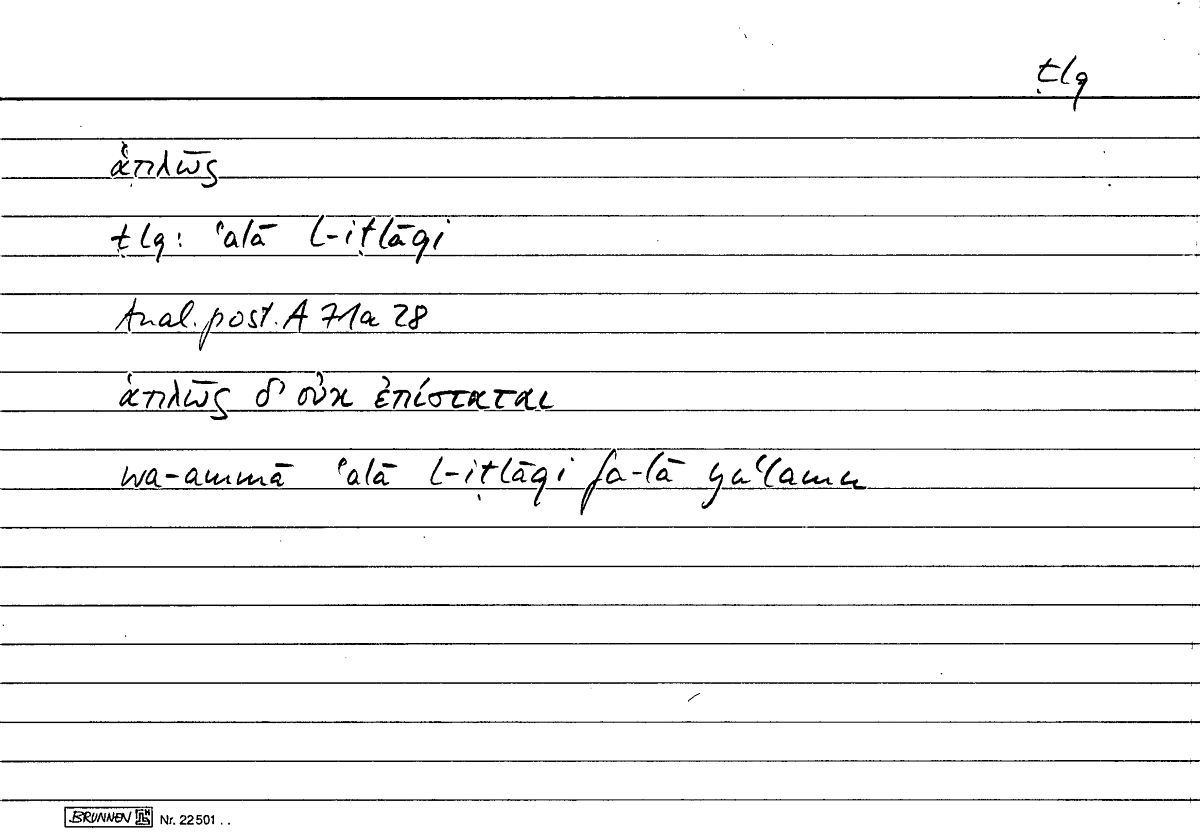 ṭlq
ἁπλῶς
ṭlq: ʿalā l-iṭlāqi
Anal. post. A 71a 28
ἁπλῶς δ' οὐκ ἐπίσταται
wa-ammā ʿalā l-iṭlāqi fa-lā yaʿlamu
BRUNNEN Nr. 22501 . .